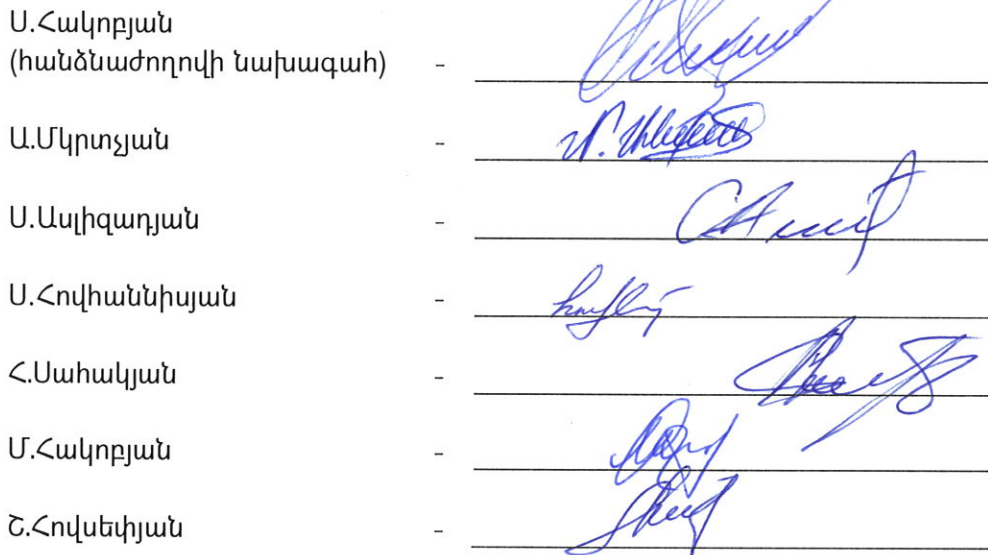 Ս.Հակոբյան
(հանձնաժողովի նախագահ) -
Ա.Մկրտչյան -
Ս.Ասլիզադյան -
Ս.Հովհաննիսյան -
Հ.Սահակյան -
Մ.Հակոբյան -
Շ.Հովսեփյան -